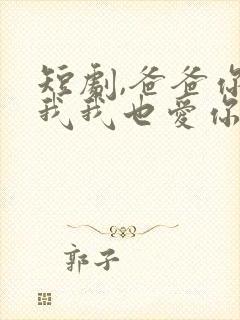 短劇,爸爸你
我我也愛你
郭子